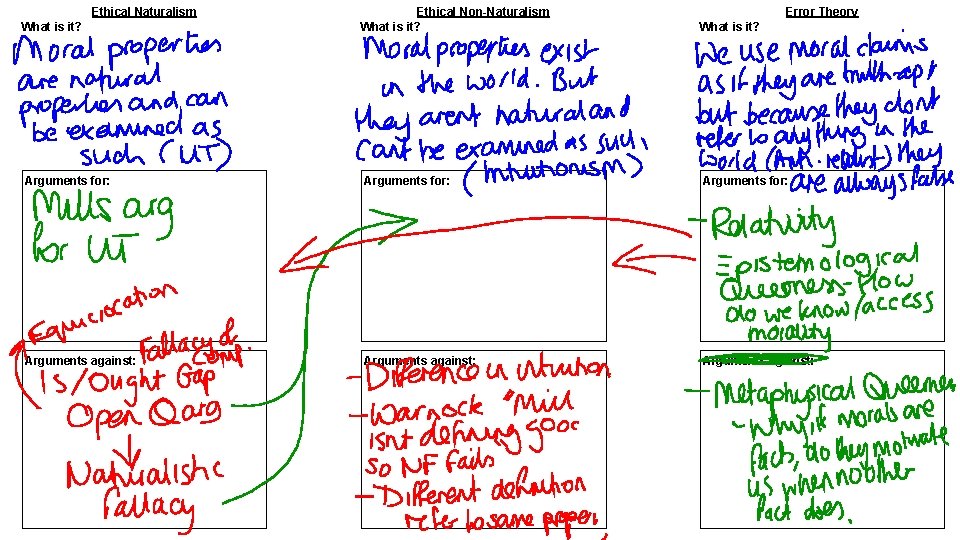 Ethical Naturalism
What is it?
Moral properties
are natural
properties and can
be examined as
such (UT)
Arguments for:
Mills arg
for UT
Equivocation
Arguments against:
Fallacy of
comp.
Is/Ought Gap
Open Q arg
Naturalistic
fallacy
Ethical Non-Naturalism
What is it?
Moral properties exist
in the world. But
they arent natural and
cant be examined as such,
(intuitionism)
Arguments for:
Arguments against:
- Difference in intuition
- Warnock "Mill
isnt defining good
so NF fails
- Different definition
refer to same proper.
Error Theory
What is it?
We use moral claims
as if they are truth-apt
but because they dont
refer to anything in the
world (Anti-realist) they
are always false
Arguments for:
- Relativity
Epistemological
Queerness - How
do we know/access
morality
- Metaphysical Queerness
- Why if morals are
facts, do they motivate
us when no other
fact does.